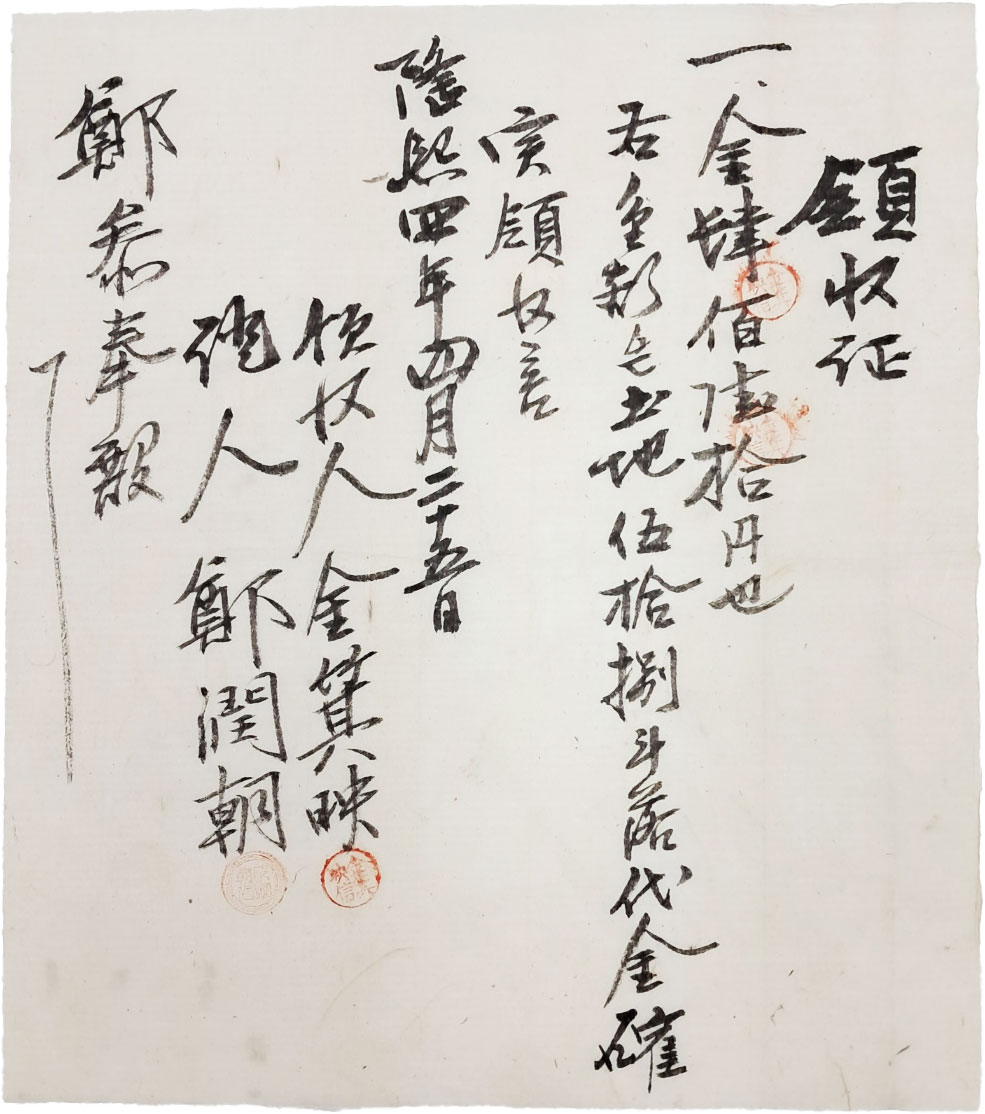 領収证
一、金肆佰陸拾円也
右金額은土地伍拾捌斗落代金確
实領収홈
隆熙四年四月二十五日
領収人 金箕映
證人 鄭潤朝
鄭叅奉殿